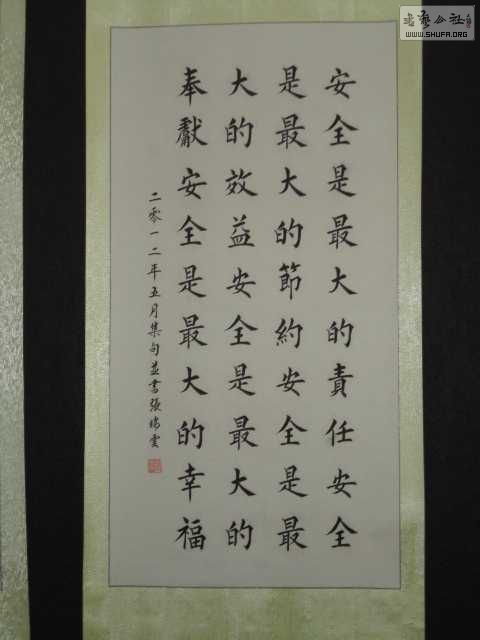 安全是最大的責任安全
是最大的節約安全是最
大的效益安全是最大的
奉獻安全是最大的幸福
二零一二年五月集句並書張瑞雲
書藝公社
WWW.SHUFA.ORG